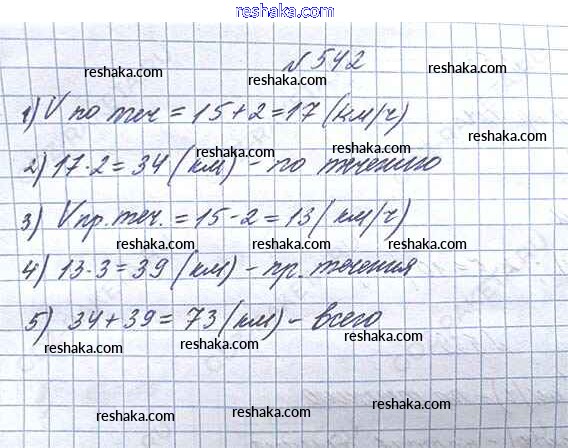 reshaka.com
№ 542
reshaka.com reshaka.com reshaka.com
1) V по теч = 15+2=17 (км/ч)
reshaka.com reshaka.com reshaka.com
2) 17·2=34 (км) – по течению
reshaka.com reshaka.com
3) Vпр.теч. = 15-2=13 (км/ч)
reshaka.com reshaka.com reshaka.com
4) 13·3=39 (км) – пр. течения
reshaka.com reshaka.com
5) 34+39= 73 (км) – всего
reshaka.com reshaka.com reshaka.com
reshaka.com reshaka.com reshaka.com